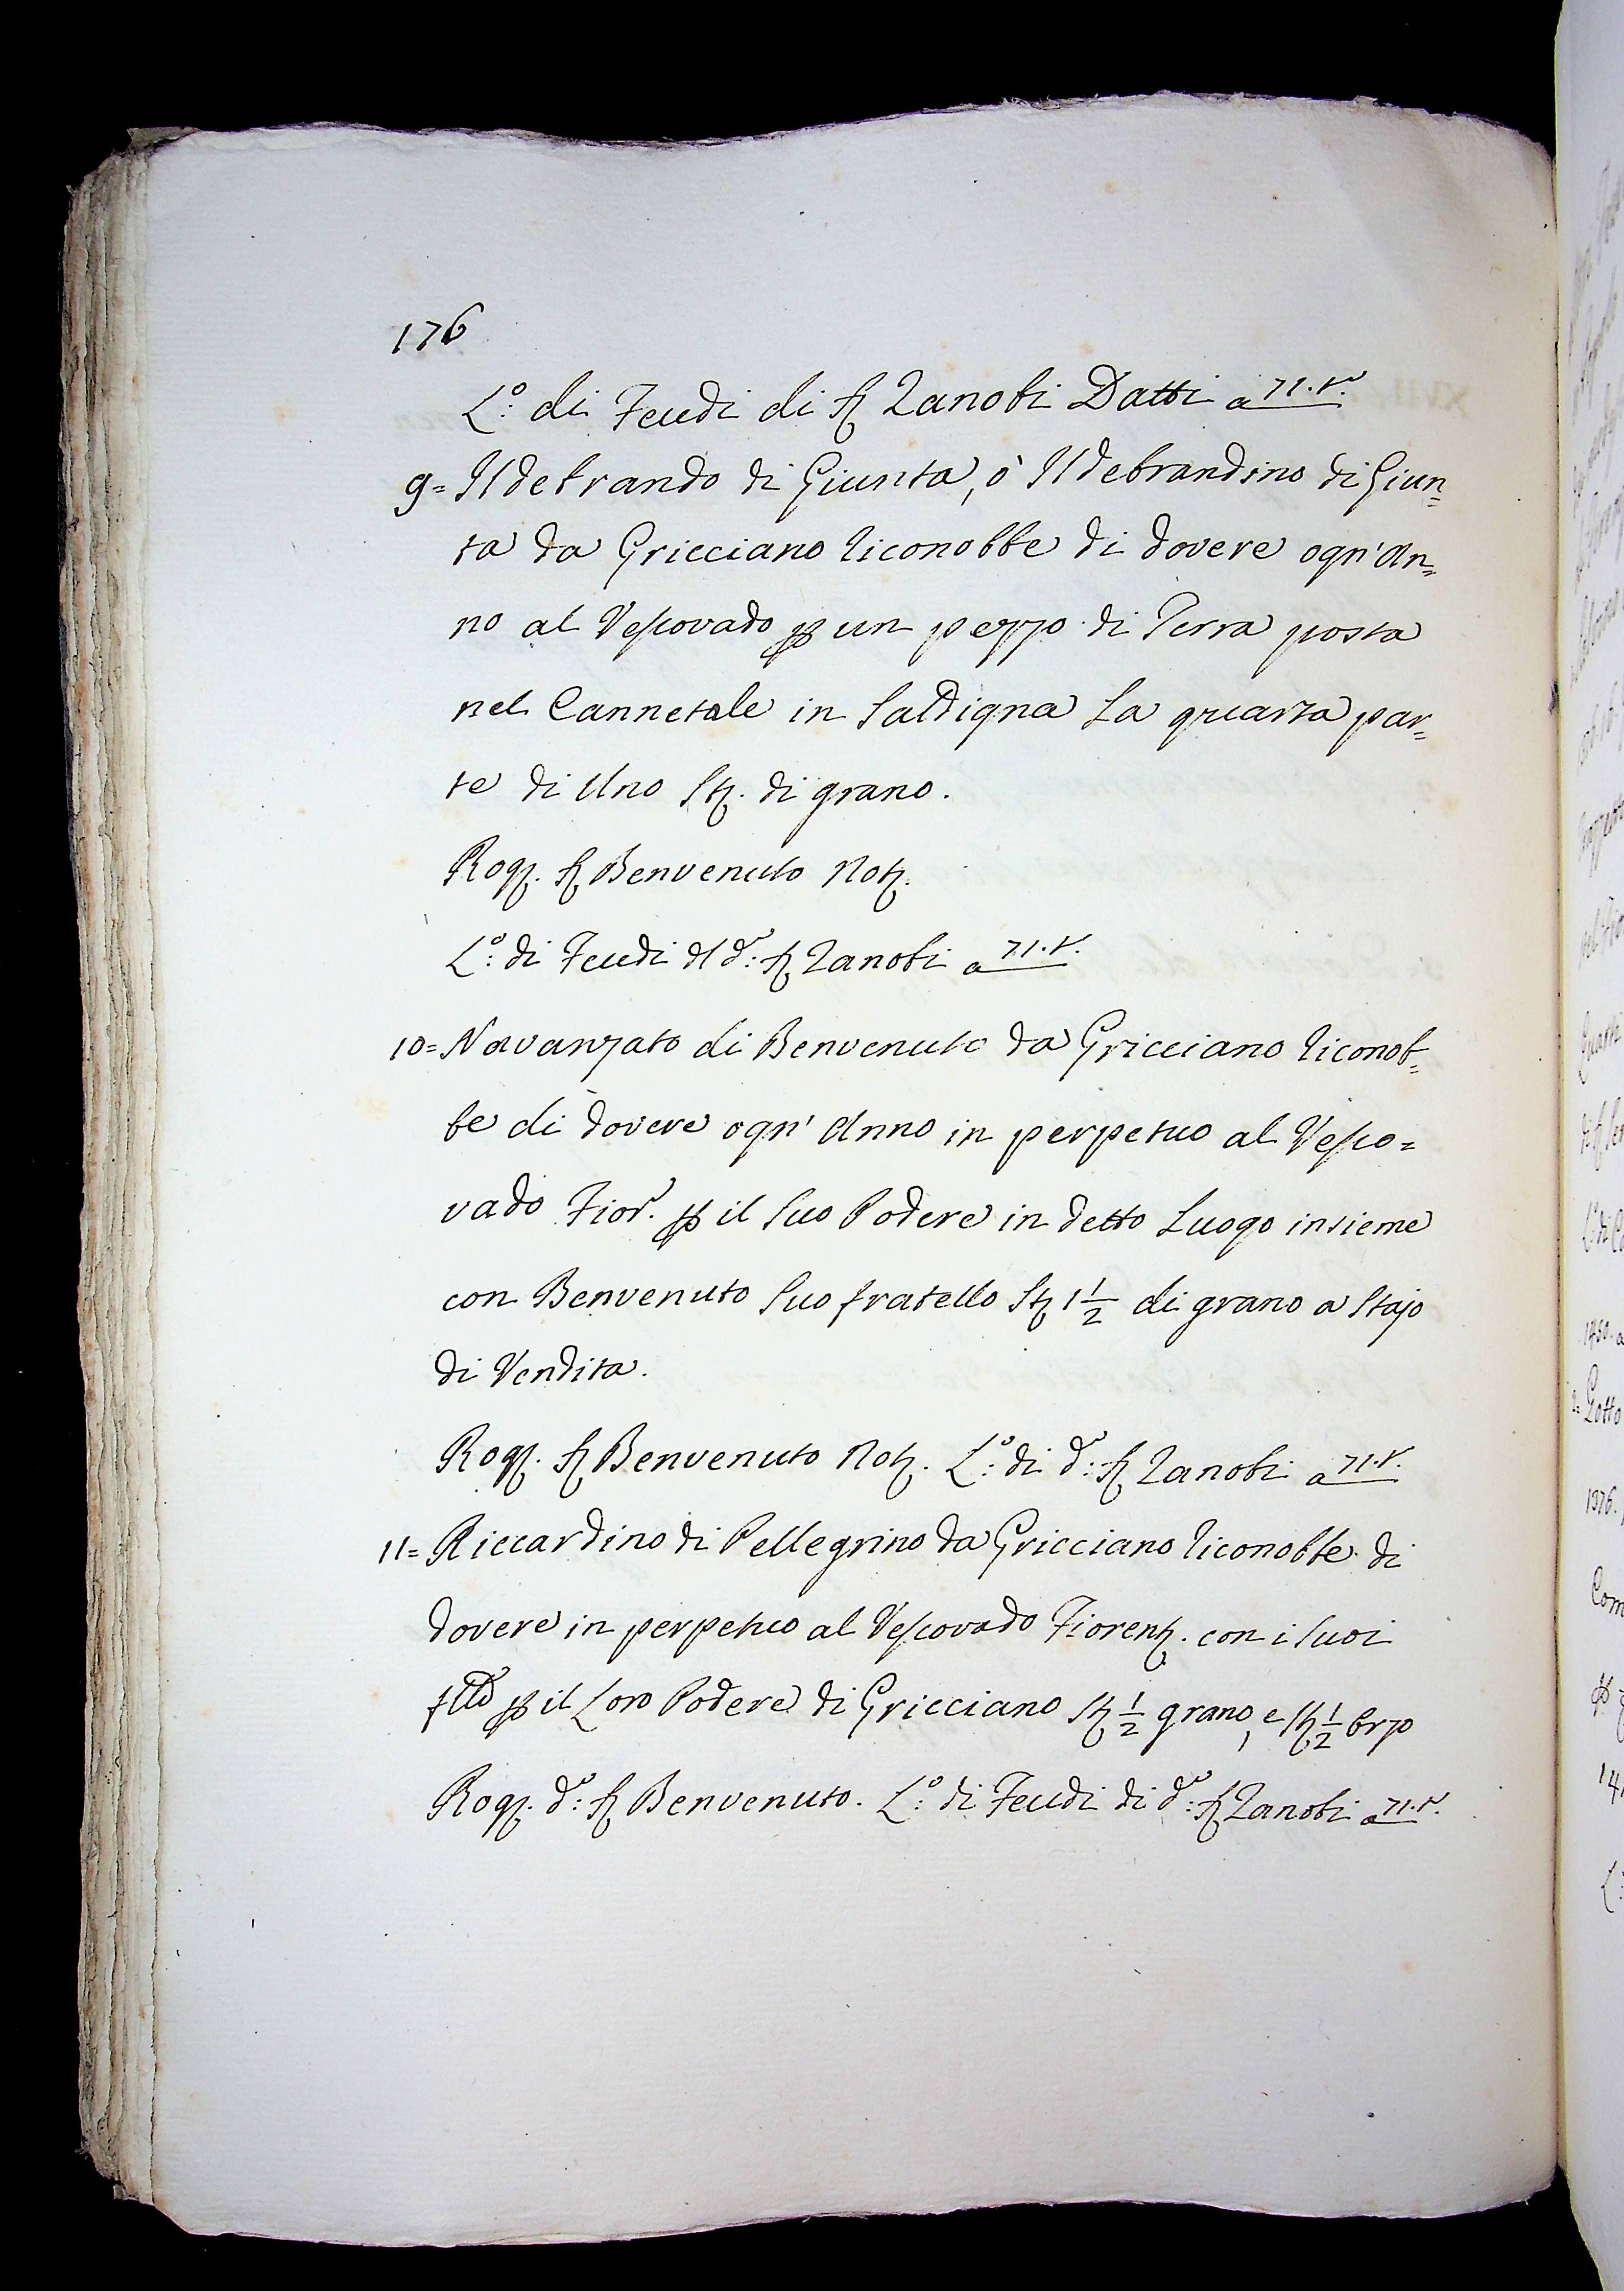 176
L.º di Feudi di S. Zanobi Datti a 71.r.
9= Ildebrando di Giunta, ò Ildebrandino di Giun=
ta da Gricciano riconobbe di dovere ogn'An=
no al Vescovado p un pezzo di Terra posta
nel Cannetale in Saldigna La quarta par=
te di Uno St. di grano.
Rog. S. Benvenuto Not.
L.º di Feudi dl d.º S. Zanobi a 71.r.
10= Navanzato di Benvenuto da Gricciano riconob=
be di dovere ogn'Anno in perpetuo al Vesco=
vado Fior.º p il Suo Podere in detto Luogo insieme
con Benvenuto Suo fratello St. 1 1/2 di grano a Stajo
di Vendita.
Rog. S. Benvenuto Not. L.º di d.º S. Zanobi a 71.r.
11= Riccardino di Pellegrino da Gricciano riconobbe di
dovere in perpetuo al Vescovado Fiorent. con i Suoi
flli p il Loro Podere di Gricciano St. 1/2 grano, e St. 1/2 Orzo
Rog. d.º S. Benvenuto. L.º di Feudi di d.º S. Zanobi a 71.r.